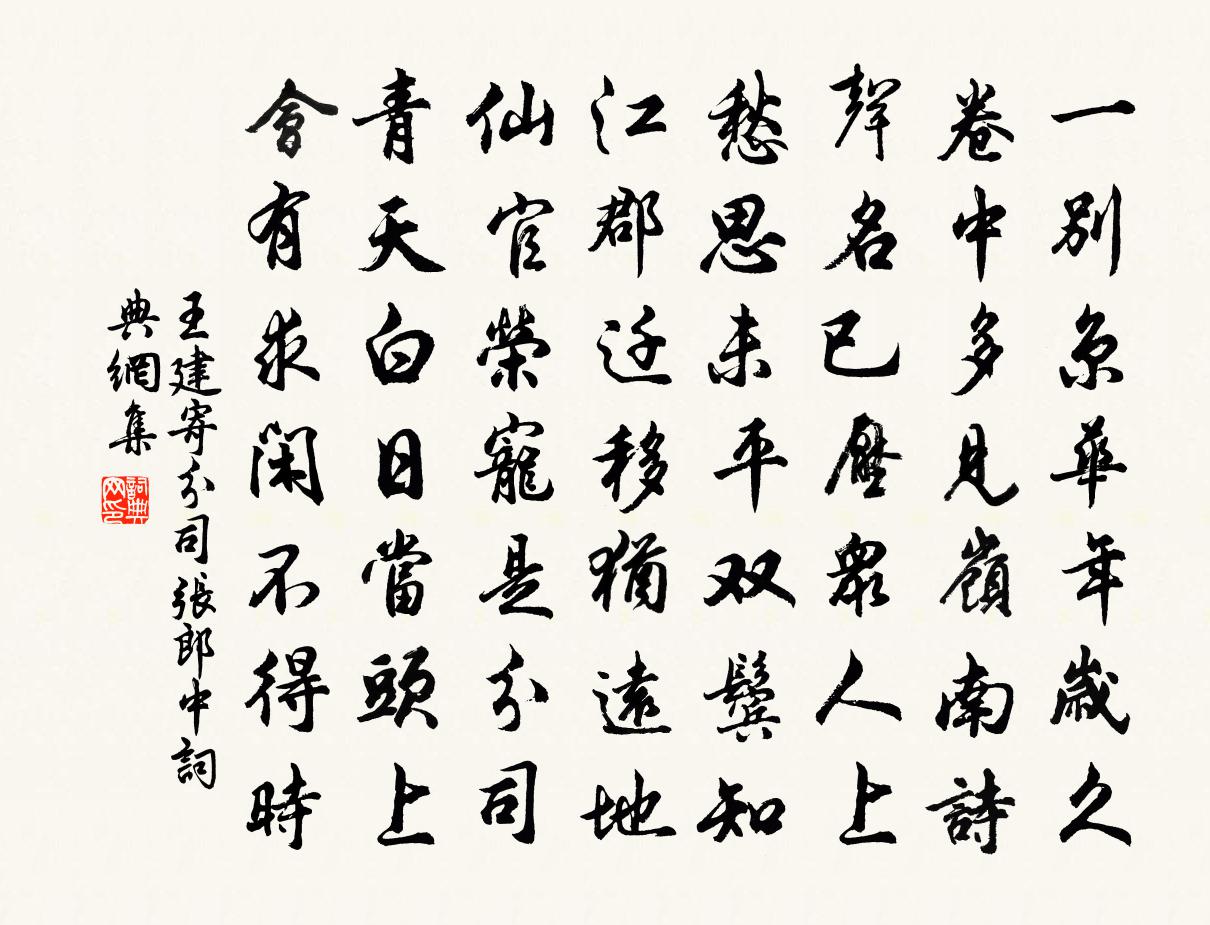 一別京華年歲久
卷中多見嶺南詩
聲名已壓衆人上
愁思未平双鬢知
江郡迁移猶遠地
仙官榮寵是分司
青天白日當頭上
會有求閑不得時
王建寄分司張郎中詞
典網集
詞典
网印